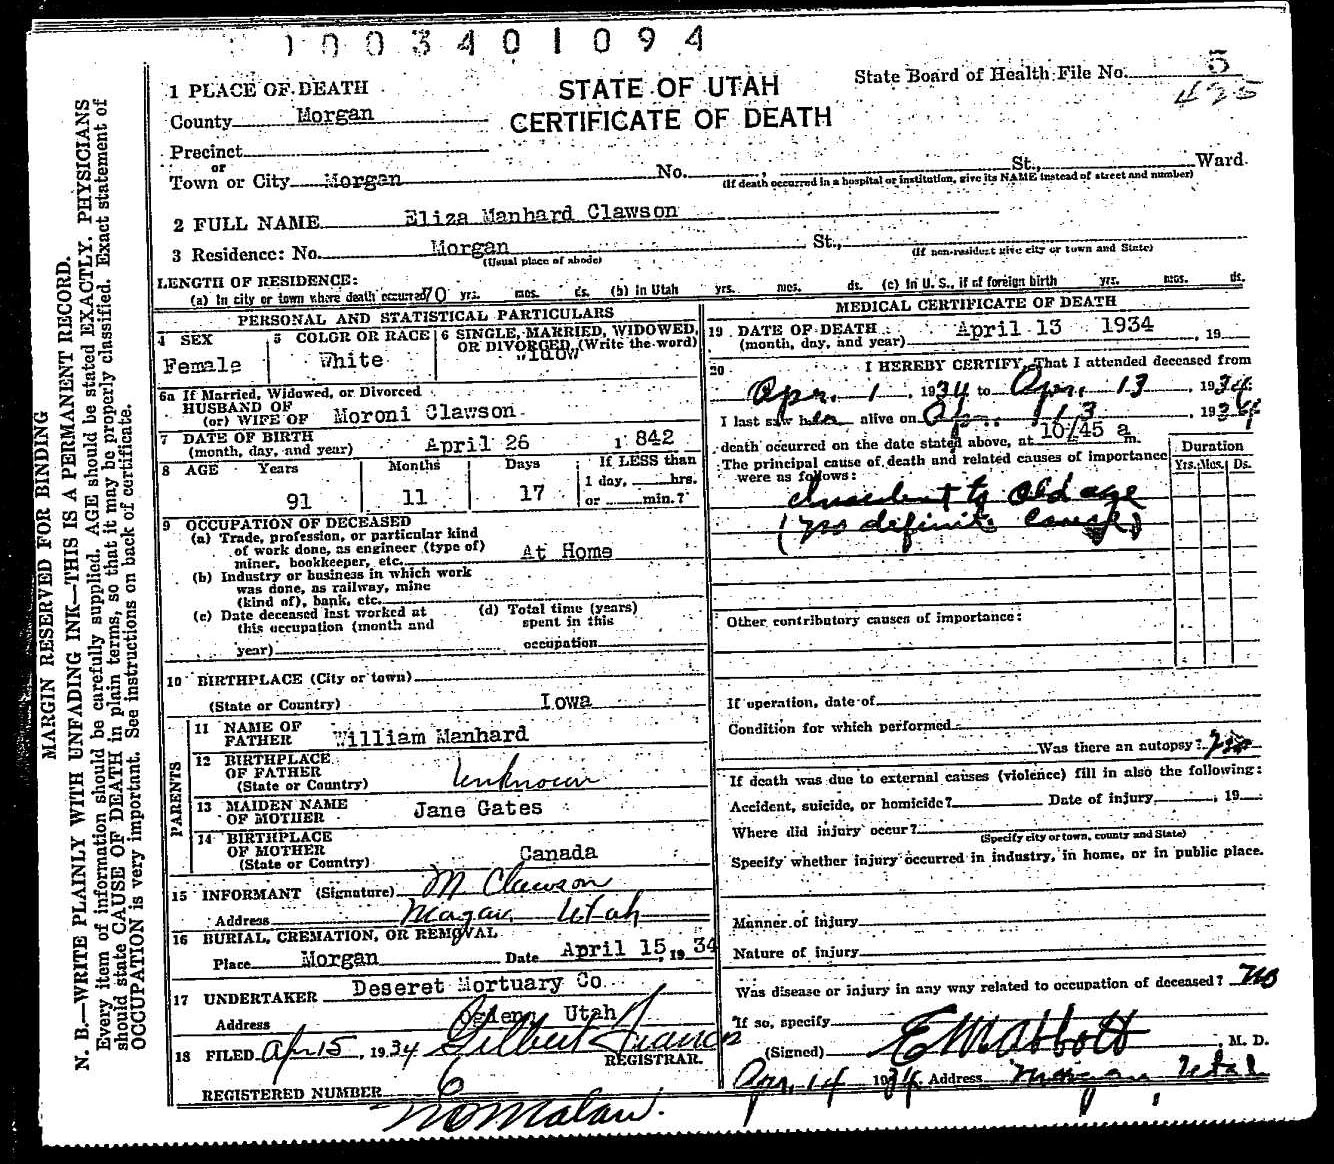 1003401094
STATE OF UTAH
CERTIFICATE OF DEATH
State Board of Health File No. 5
425
1 PLACE OF DEATH
County Morgan
Precinct
or
Town or City Morgan No. , St., Ward.
(If death occurred in a hospital or institution, give its NAME instead of street and number)
2 FULL NAME Eliza Manhard Clawson
3 Residence: No. Morgan St.,
(Usual place of abode) (If non-resident give city or town and State)
LENGTH OF RESIDENCE:
(a) In city or town where death occurred 70 yrs. mos. ds. (b) in Utah yrs. mos. ds. (c) In U. S., if of foreign birth yrs. mos. ds.
PERSONAL AND STATISTICAL PARTICULARS
4 SEX
Female
5 COLOR OR RACE
White
6 SINGLE, MARRIED, WIDOWED,
OR DIVORCED (Write the word)
Widow
6a If Married, Widowed, or Divorced
HUSBAND OF
(or) WIFE OF Moroni Clawson
7 DATE OF BIRTH
(month, day, and year) April 26 1842
8 AGE Years Months Days If LESS than
1 day, hrs.
91 11 17 or min.?
9 OCCUPATION OF DECEASED
(a) Trade, profession, or particular kind
of work done, as engineer (type of)
miner, bookkeeper, etc. At Home
(b) Industry or business in which work
was done, as railway, mine
(kind of), bank, etc.
(c) Date deceased last worked at
this occupation (month and
year)
(d) Total time (years)
spent in this
occupation
10 BIRTHPLACE (City or town)
(State or Country) Iowa
PARENTS
11 NAME OF
FATHER William Manhard
12 BIRTHPLACE
OF FATHER
(State or Country) Unknown
13 MAIDEN NAME
OF MOTHER Jane Gates
14 BIRTHPLACE
OF MOTHER
(State or Country) Canada
15 INFORMANT (Signature) M. Clawson
Address Morgan Utah
16 BURIAL, CREMATION, OR REMOVAL
Place Morgan Date April 15, 1934
17 UNDERTAKER Deseret Mortuary Co
Address Ogden Utah
18 FILED Apr 15, 1934 Gilbert Francis
REGISTRAR.
REGISTERED NUMBER 6
MEDICAL CERTIFICATE OF DEATH
19 DATE OF DEATH
(month, day, and year) April 13 1934 , 19
20 I HEREBY CERTIFY, That I attended deceased from
Apr. 1, 1934 to Apr. 13, 1934
I last saw her alive on Apr. 13, 1934
death occurred on the date stated above, at 10/45 a m.
The principal cause of death and related causes of importance
were as follows:
Duration
Yrs. Mos. Ds.
Incident to Old age
(no definite cause)
Other contributory causes of importance:
If operation, date of
Condition for which performed
Was there an autopsy? no
If death was due to external causes (violence) fill in also the following:
Accident, suicide, or homicide? Date of injury , 19
Where did injury occur?
(Specify city or town, county and State)
Specify whether injury occurred in industry, in home, or in public place.
Manner of injury
Nature of injury
Was disease or injury in any way related to occupation of deceased? no
If so, specify
(Signed) E M Abbott, M. D.
Apr. 14 1934 Address Morgan, Utah
MARGIN RESERVED FOR BINDING
N. B.—WRITE PLAINLY WITH UNFADING INK—THIS IS A PERMANENT RECORD.
Every item of information should be carefully supplied. AGE should be stated EXACTLY. PHYSICIANS
should state CAUSE OF DEATH in plain terms, so that it may be properly classified. Exact statement of
OCCUPATION is very important. See instructions on back of certificate.